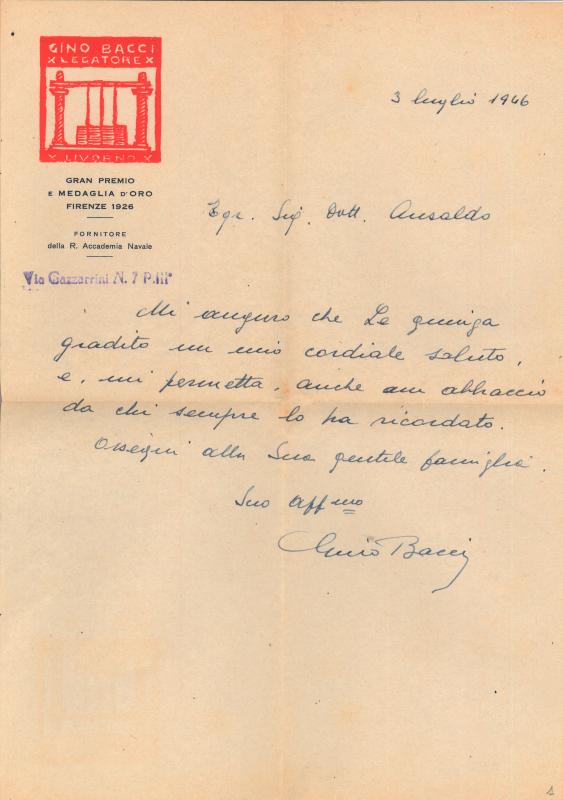 GINO BACCI
X LEGATORE X
X LIVORNO X
GRAN PREMIO
E MEDAGLIA D'ORO
FIRENZE 1926
FORNITORE
della R. Accademia Navale
Via Gazzarrini N. 7 P.III°
3 luglio 1946
Egr. Sig. Dott. Ansaldo
Mi auguro che Le giunga
gradito un mio cordiale saluto,
e, mi permetta, anche un abbraccio
da chi sempre lo ha ricordato.
Ossequi alla Sua gentile famiglia.
Suo aff mo
Gino Bacci
1